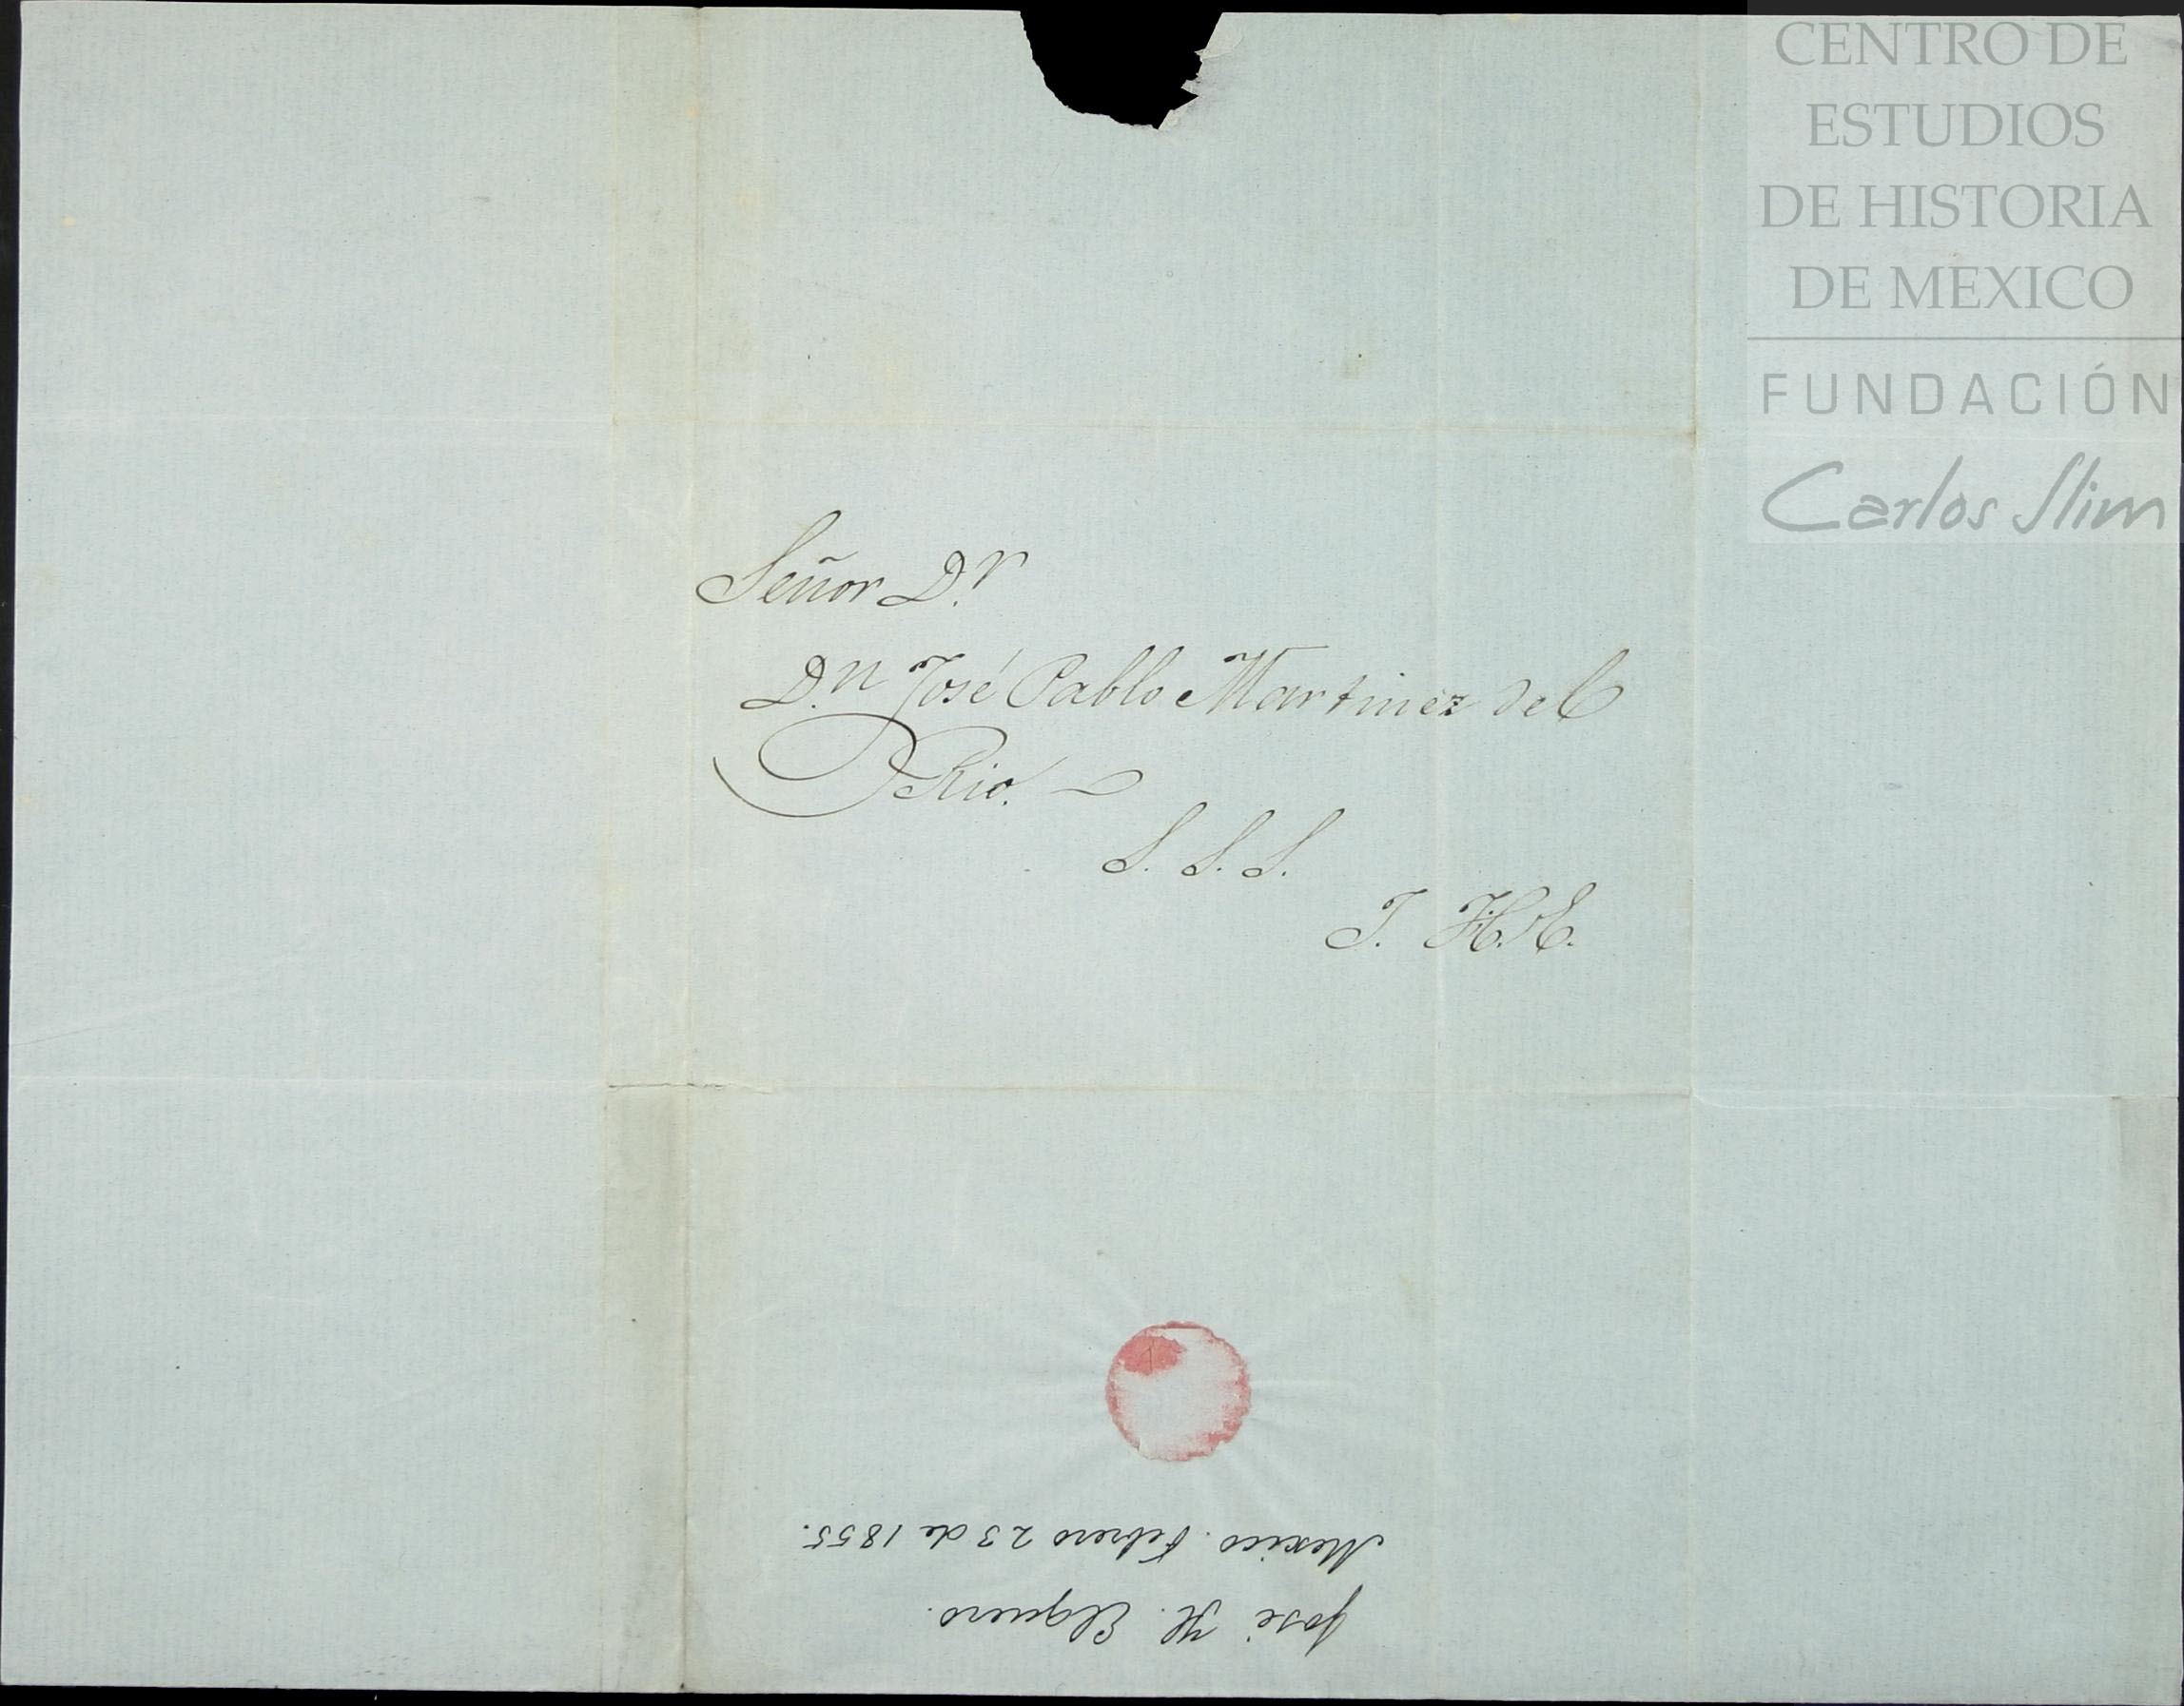 CENTRO DE
ESTUDIOS
DE HISTORIA
DE MEXICO
FUNDACIÓN
Carlos Slim
Señor Dr
Dn José Pablo Martinez del
Rio.
S. S. S.
J. H. E.
José H. Elguero.
Mexico. Febrero 23 de 1855.